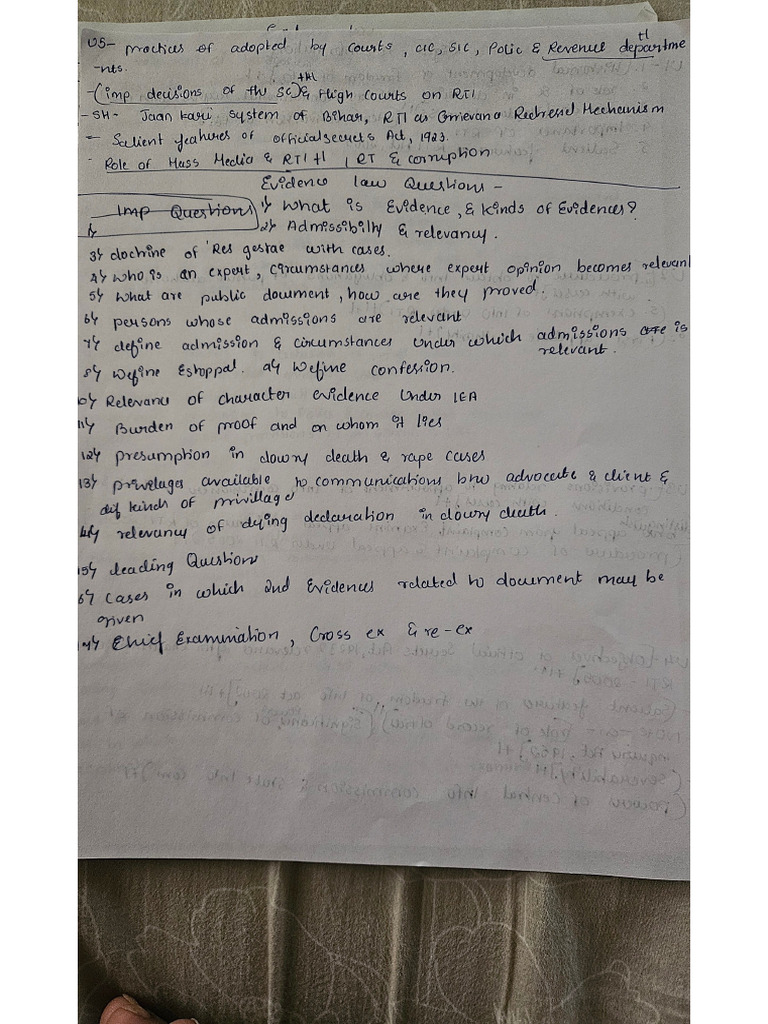 U5- practices of adopted by courts, CIC, SIC, Polic & Revenue departme
-nts.
- (imp decisions of the SC) & High Courts on RTI
- SH- Jaankari system of Bihar, RTI as Grievance Redresel Mechanism
- Salient features of officialsecrets Act, 1923.
- Role of Mass Media & RTI, RT & corruption
Evidence law Questions -
Imp Questions 1) What is Evidence, & kinds of Evidences?
2) Admissibilty & relevancy.
3) doctrine of Res gestae with cases.
4) who is an expert, circumstances where expert opinion becomes relevant
5) what are public document, how are they proved.
6) persons whose admissions are relevant
7) define admission & circumstances under which admissions are is
relevant.
8) Define Estoppal. 9) Define confesion.
10) Relevanc of character evidence under IEA
11) Burden of proof and on whom it lies
12) presumption in dowry death & rape cases
13) privilages available to communications b/w advocate & client &
dif kinds of privillage
14) relevancy of dying declaration in dowry death.
15) leading Questions
16) Cases in which 2nd Evidences related to document may be
given
17) Chief Examination, Cross ex & re-ex